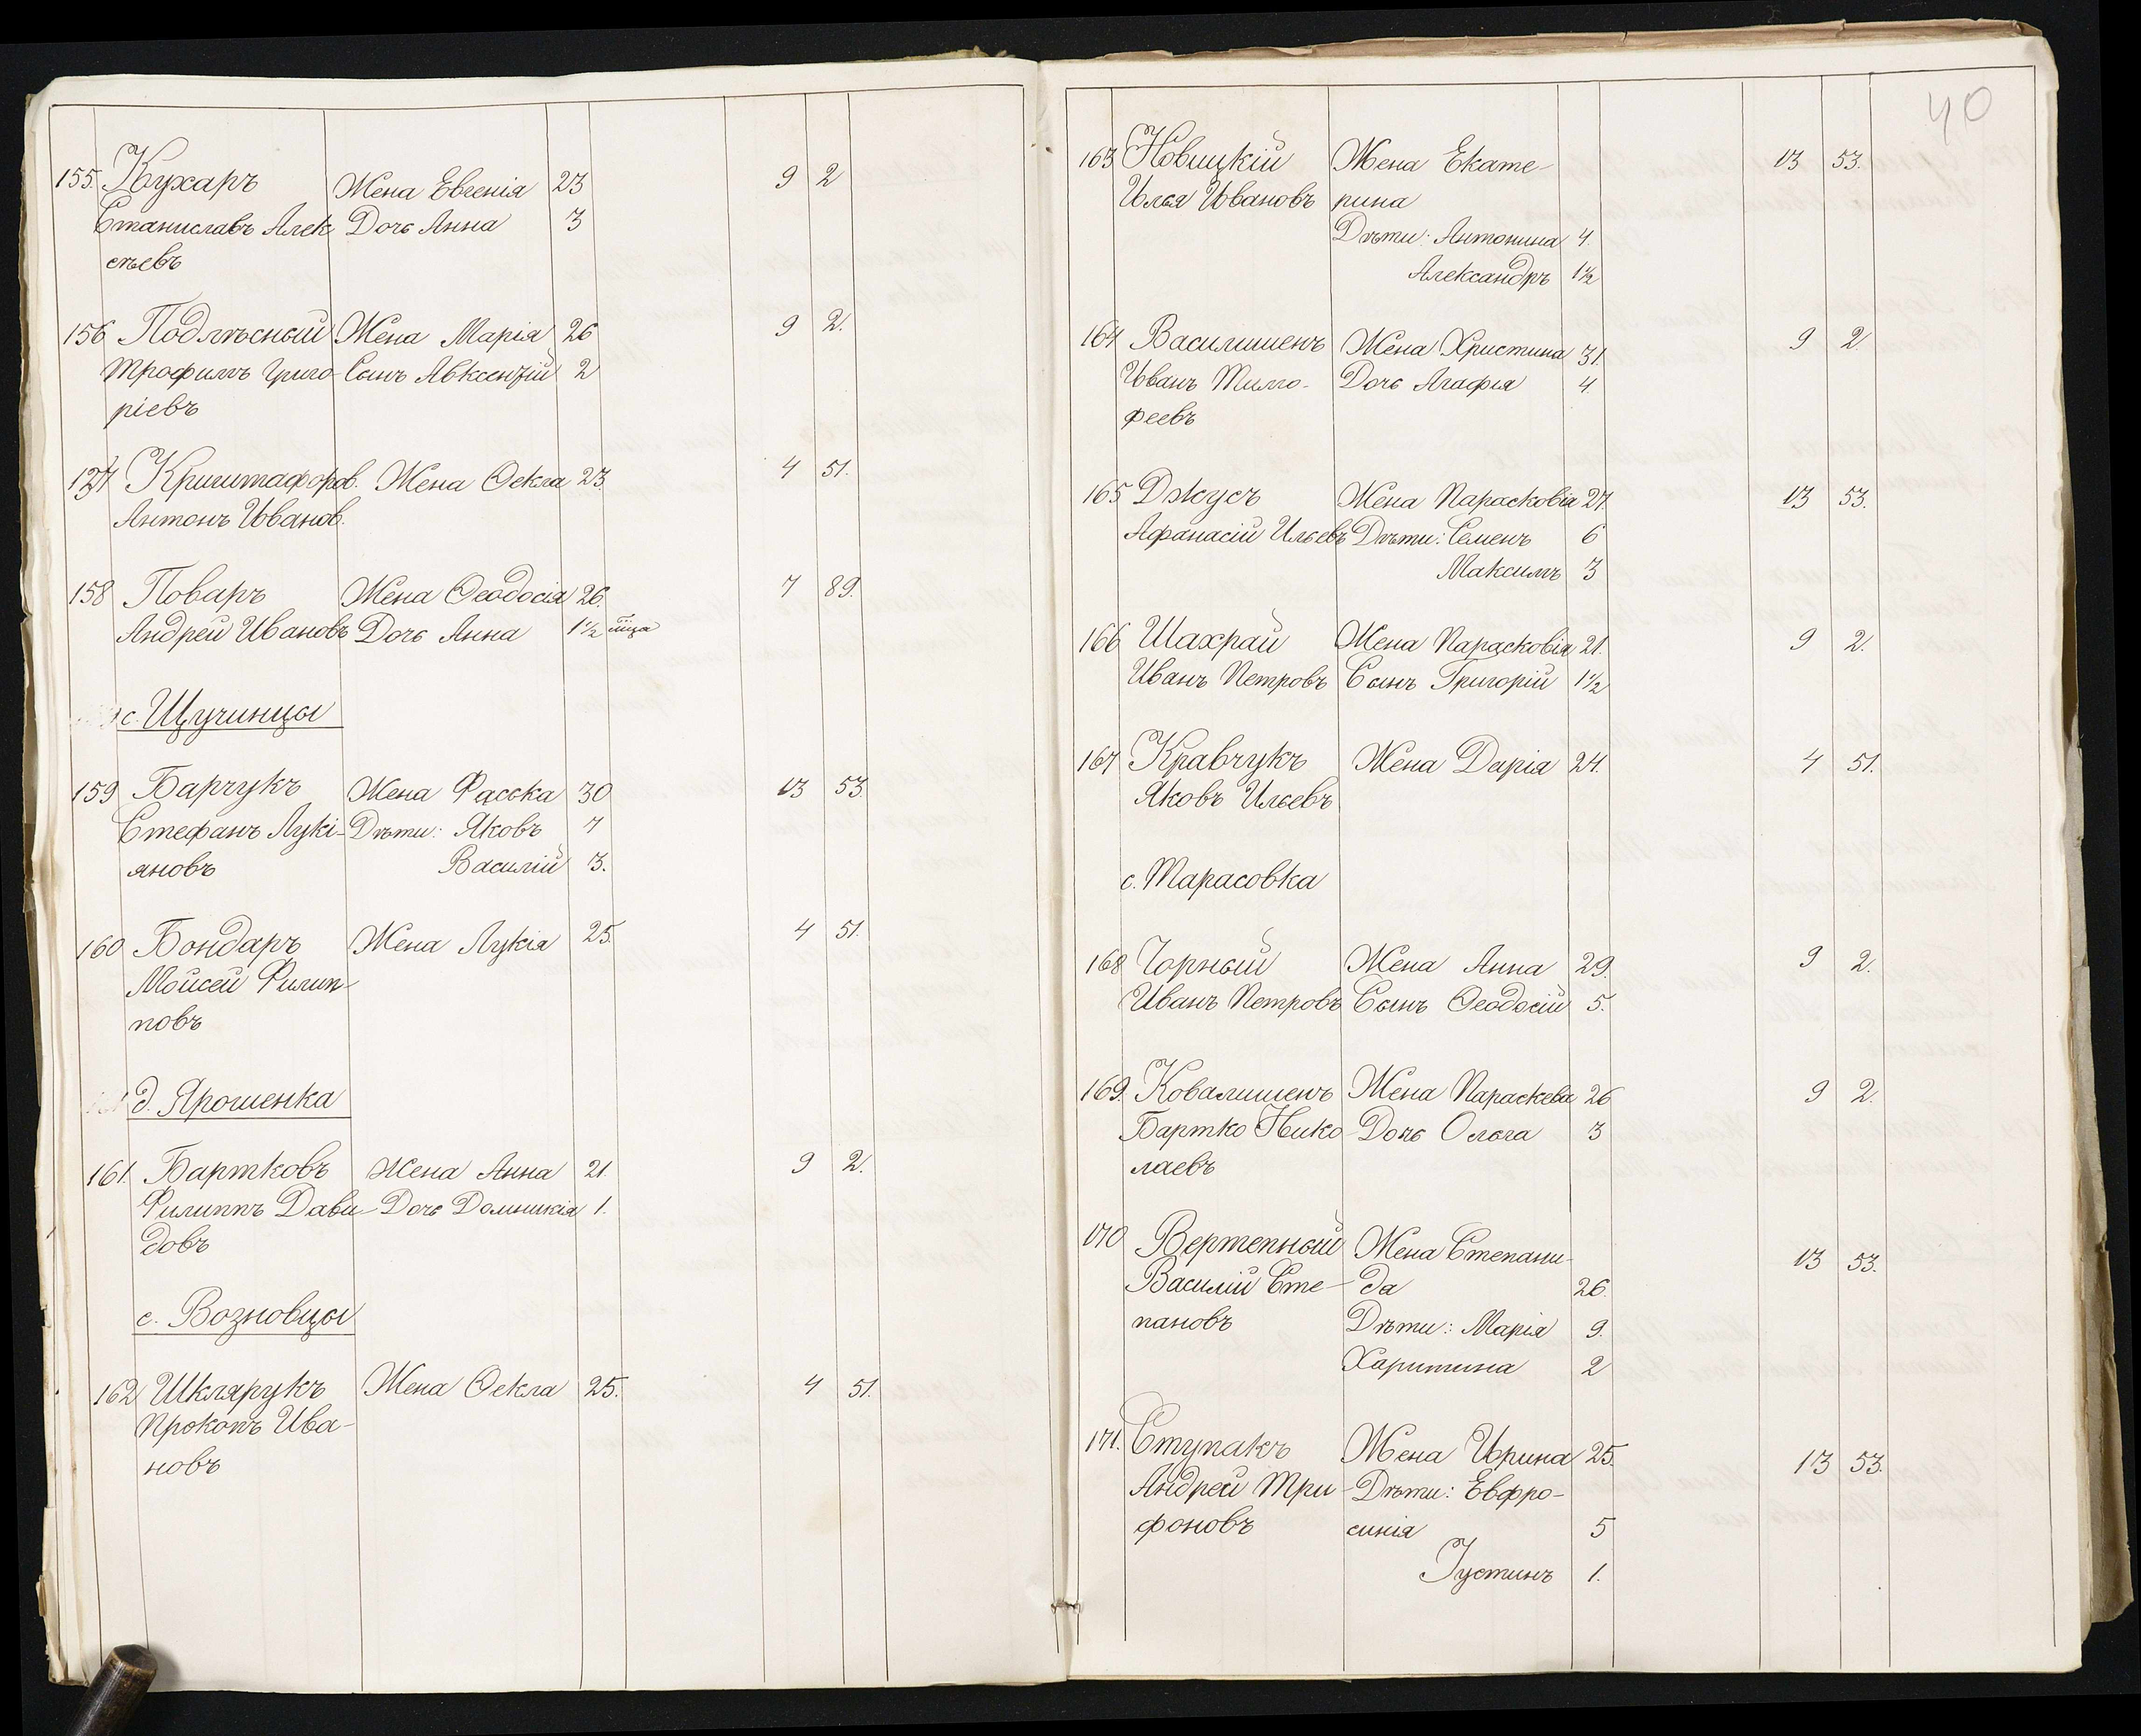 155. Кухаръ Жена Евгенія 23 9 2
Станиславъ Алек Дочь Анна 3
сѣевъ
156 Подлѣсный Жена Марія 26 9 2.
Трофимъ Григо- Сынъ Авксентій 2
ріевъ
157 Криштафоров. Жена Ѳекла 23. 4 51.
Антонъ Иванов.
158 Поваръ Жена Ѳеодосія 26. 7 89.
Андрей Ивановъ Дочь Анна 1½
с. Щучинцы
159 Барчукъ Жена Фасъка 30 13 53.
Стефанъ Лукі- Дѣти: Яковъ 7
ановъ Василій 3.
160 Бондаръ Жена Лукія 25. 4 51.
Мойсей Филип-
повъ
д. Ярошенка
161. Бартковъ Жена Анна 21. 9 2.
Филиппъ Дави- Дочь Домникія 1.
довъ
с. Возновцы
162 Шклярукъ Жена Ѳекла 25. 4 51.
Прокопъ Ива-
новъ
40
163 Новицкій Жена Екате- 13 53.
Илья Ивановъ рина
Дѣти: Антонина 4.
Александръ 1½
164 Василишенъ Жена Христина 31. 9 2
Иванъ Тимо- Дочь Агафія 4.
феевъ
165 Джусъ Жена Парасковія 27. 13 53.
Афанасій Ильевъ Дѣти: Семенъ 6
Максимъ 3
166 Шахрай Жена Парасковія 21. 9 2.
Иванъ Петровъ Сынъ Григорій 1½
167 Кравчукъ Жена Дарія 24. 4 51.
Яковъ Ильевъ
с. Тарасовка
168 Чорный Жена Анна 29. 9 2.
Иванъ Петровъ Сынъ Ѳеодосій 5.
169. Ковалишенъ Жена Параскева 26 9 2.
Бартко Нико- Дочь Ольга 3
лаевъ
170 Вертепный Жена Степани- 13 53.
Василій Сте- да 26.
пановъ Дѣти: Марія 9.
Харитина 2
171. Ступакъ Жена Ирина 25. 13 53.
Андрей Три- Дѣти: Евфро-
фоновъ синія 5
Іустинъ 1.